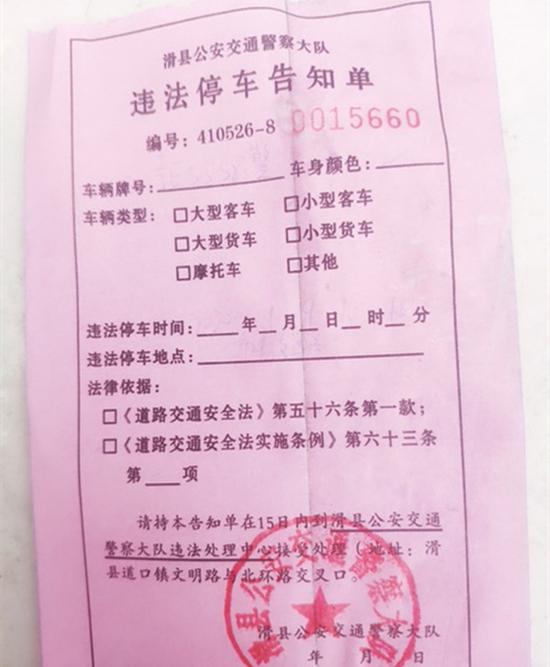 滑县公安交通警察大队
违法停车告知单
编号：410526-8 0015660
车辆牌号：________ 车身颜色：________
车辆类型：□大型客车 □小型客车
□大型货车 □小型货车
□摩托车 □其他
违法停车时间：____年__月__日__时__分
违法停车地点：________________
法律依据：
□《道路交通安全法》第五十六条第一款；
□《道路交通安全法实施条例》第六十三条
第___项
请持本告知单在15日内到滑县公安交通
警察大队违法处理中心接受处理（地址：滑
县道口镇文明路与北环路交叉口。
滑县公安交通警察大队
滑县公安交通警察大队
年 月 日